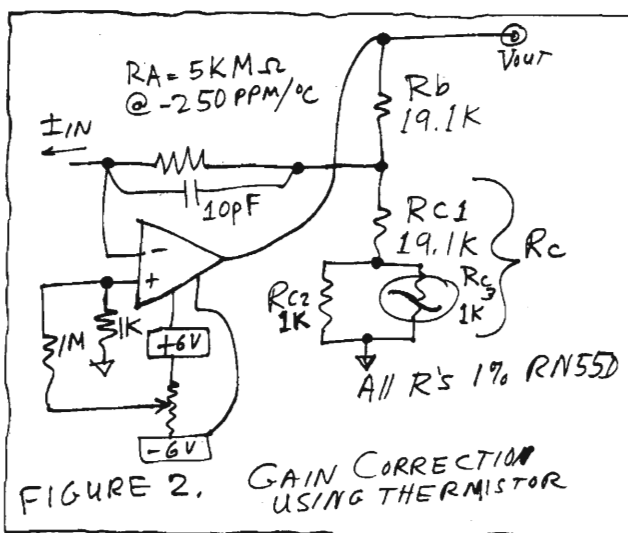 RA = 5KMΩ
@ -250 PPM/°C
VOUT
Rb
19.1K
IIN
10pF
RC1
19.1K
RC
-
+
RC2
1K
RC3
1K
1M
1K
+6V
-6V
All R's 1% RN55D
FIGURE 2. GAIN CORRECTION
USING THERMISTOR